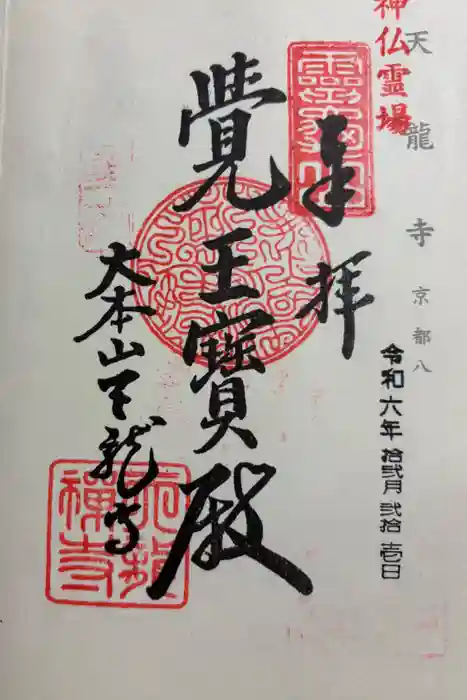 神仏霊場
天龍寺 京都八
令和六年拾弐月弐拾壱日
奉拝
覺王寶殿
大本山天龍寺